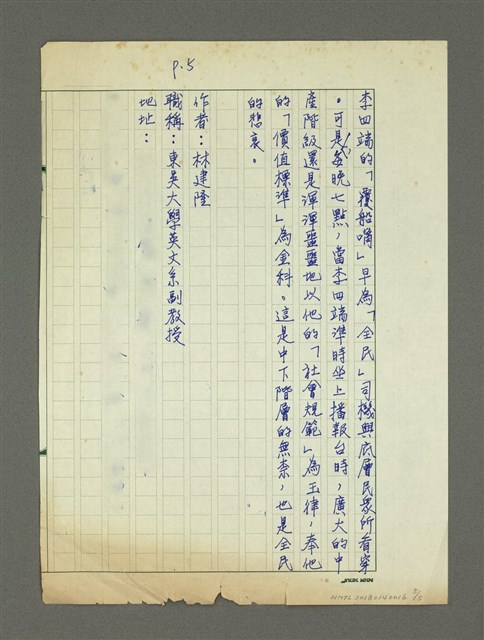 P.5
李四端的「覆船嘴」早為「全民」司機與底層民衆所看穿
。可是每晚七點，當李四端準時坐上播報台時，廣大的中
產階級還是渾渾噩噩地以他的「社會規範」為玉律，奉他
的「價值標準」為金科。這是中下階層的無奈，也是全民
的悲哀。
作者：林建隆
職稱：東吳大學英文系副教授
地址：
NMTL20180140016
5/15